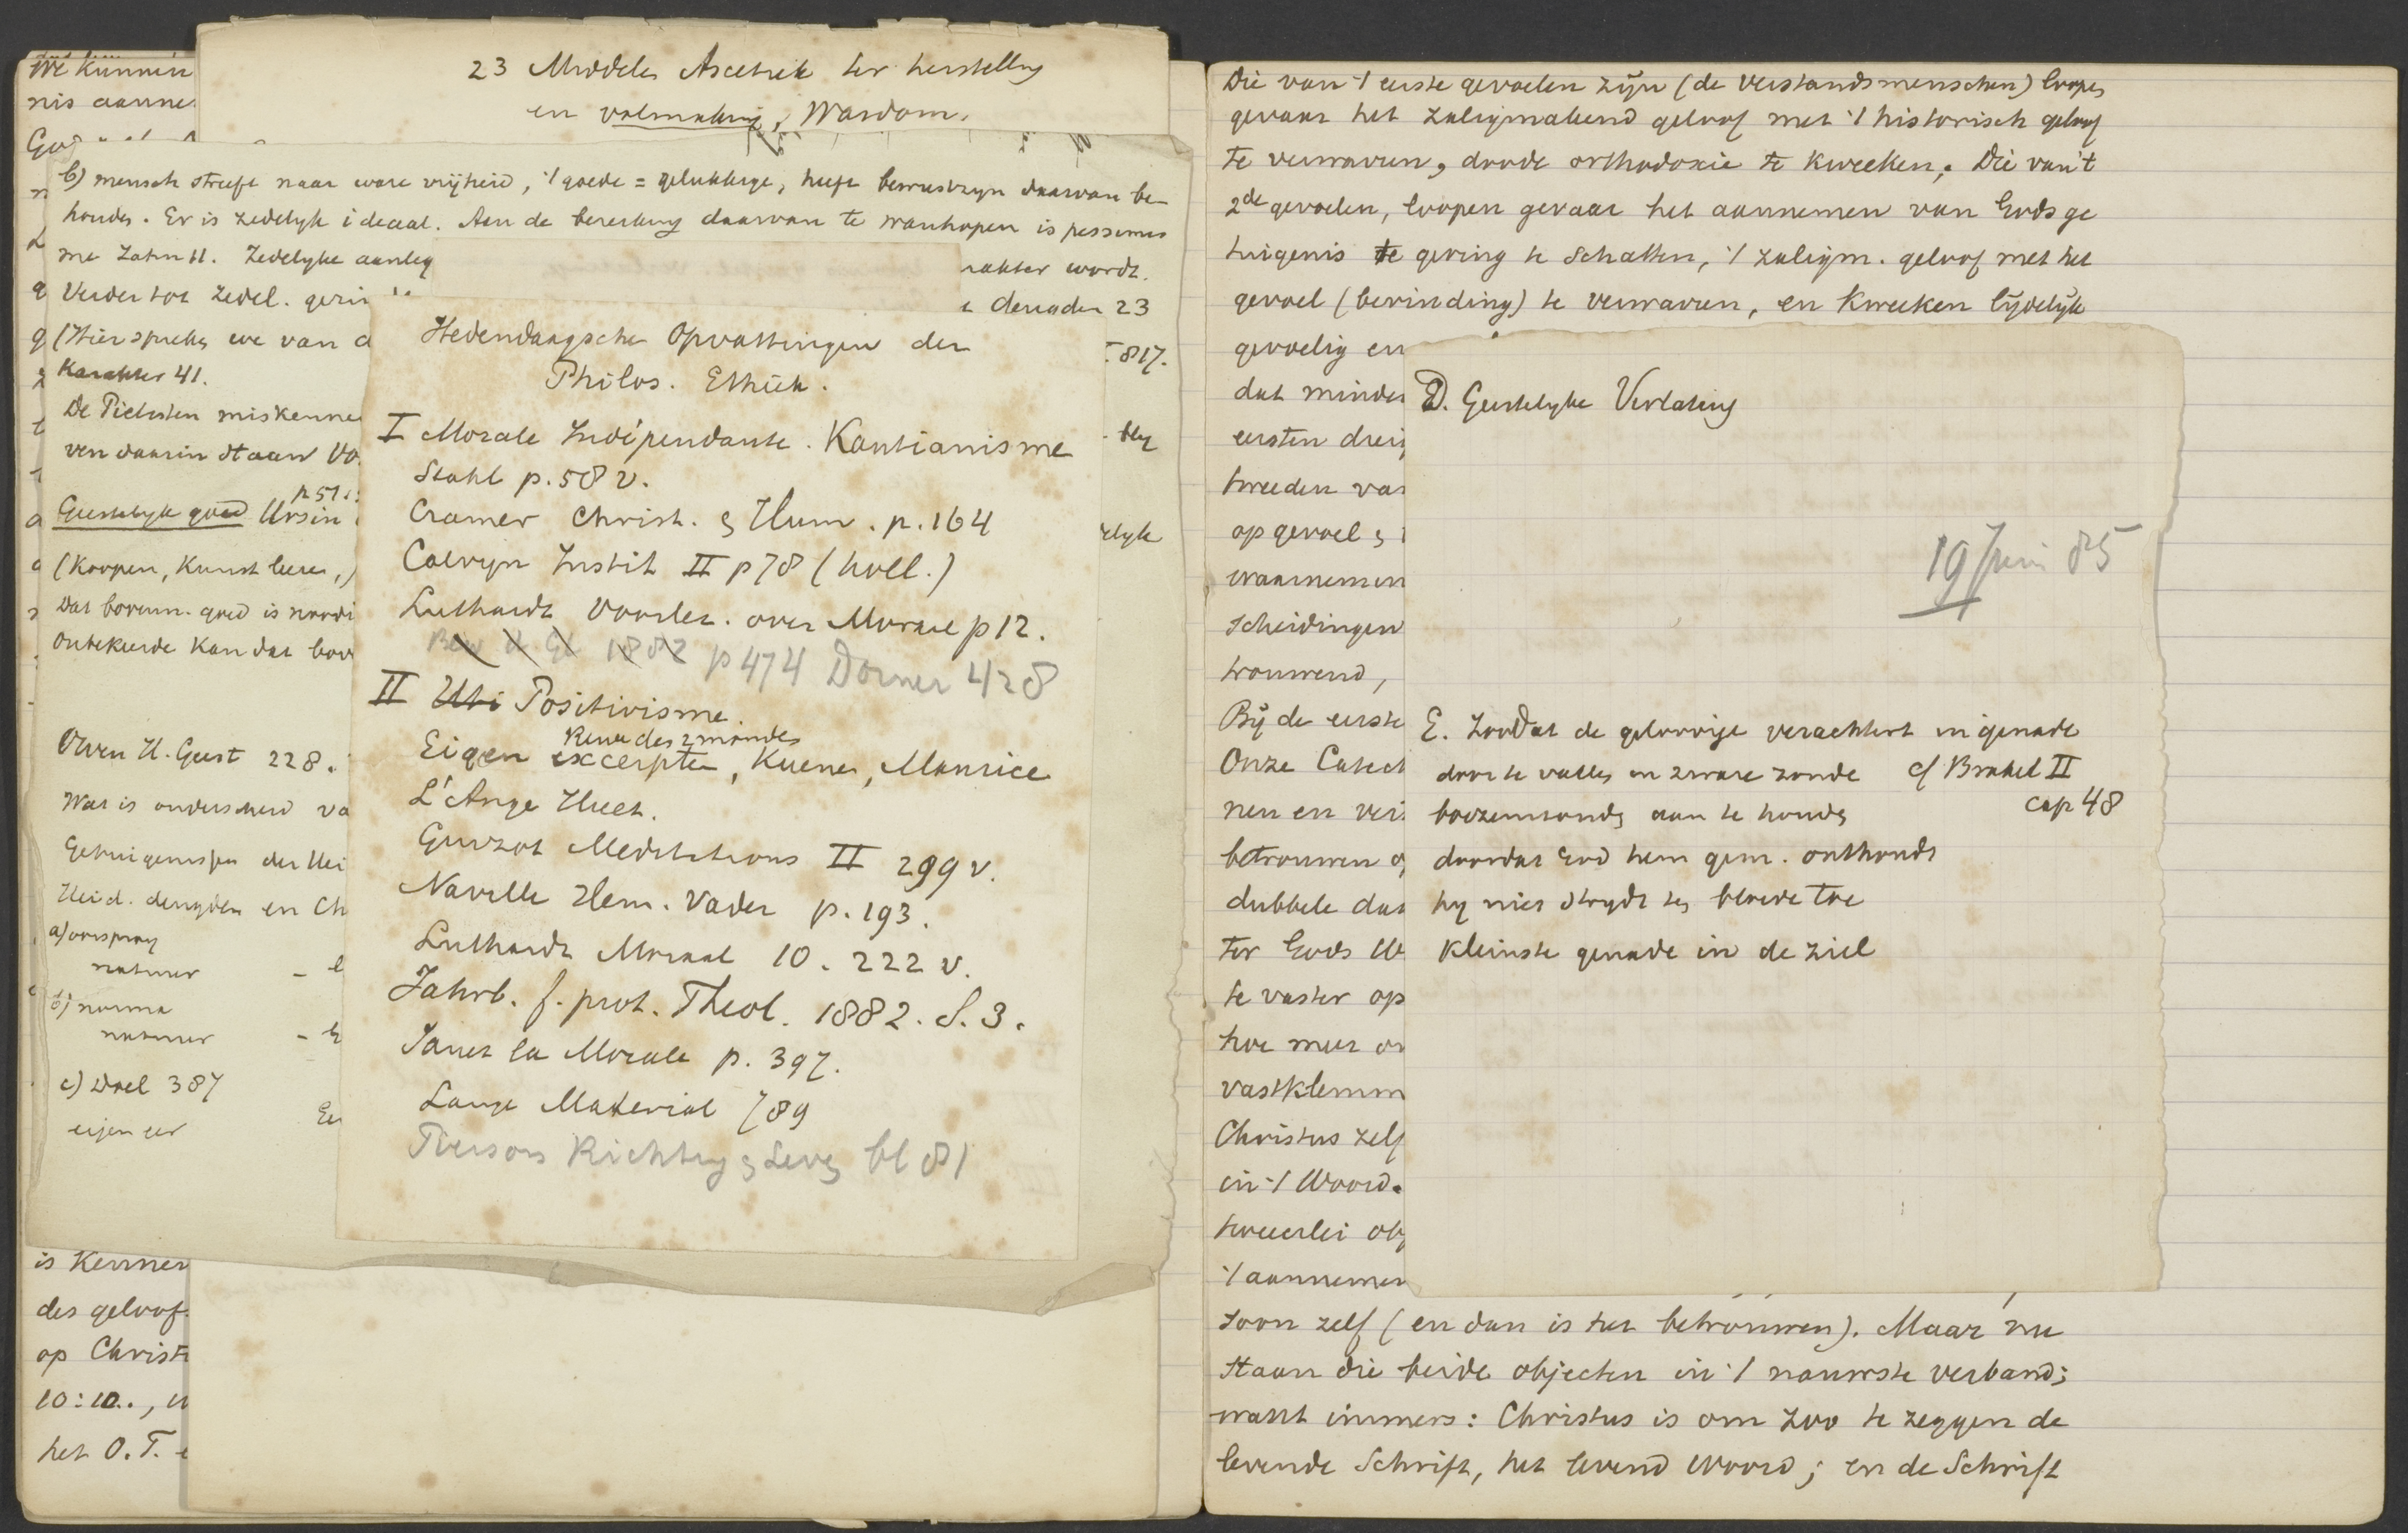 We kunnen
nis aanne
God
23 Middelen Ascetiek ter herstelling
en volmaking, Wasdom.
b) mensch streeft naar ware vrijheid, 't goede = gelukkige, heeft bewustzijn daarvan be-
houden. Er is zedelijk ideaal. Aan de bereiking daarvan te wanhopen is pessimis
me Zahn 11. Zedelyke aanleg
rakter wordt.
Verder tot zedel.
deugden 23
(Hier spreken we van
Karakter 41.
817.
De Pietisten miskennen
ven daarin staan
p 51
Geestelyk goed Ursin
(Koopen, Kunst leeren,)
elyk
Dat borum. goed is noodi
Onbekeerde kan dat bov
Owen H. Geest 228.
Wat is onderscheid va
Getuigenissen der Hei
Heid. deugden en Ch
a) oorsprong
natuur –
b) norma
natuur –
c) Doel 387
eigen eer
Hedendaagsche Opvattingen der
Philos. Ethiek.
I Morale Indépendante. Kantianisme
Stahl p. 58 v.
Cramer Christ. en Hum. p. 164
Calvyn Instit II p 78 (holl.)
Luthardt Voorlez. over Moraal p 12.
1882 p 474 Dorner 428
II Uti Positivisme.
Revue des 2 mondes
Eigen excerpten, Kuenen, Maurice
L'Ange Huet.
Guizot Meditations II 299 v.
Naville Hem. Vader p. 193.
Luthardt Moraal 10. 222 v.
Jahrb. f. prot. Theol. 1882. S. 3.
Janet la Morale p. 397.
Lange Material 789
Pierson Richting en Leven bl 81
is Kenner
des geloof
op Christ
10:10.,
het O.T.
Die van 't eerste gevoelen zijn (de verstandsmenschen) loopen
gevaar het zaligmakend geloof met 't historisch geloof
te verwarren, doode orthodoxie te kweeken; Die van 't
2de gevoelen, loopen gevaar het aannemen van Gods ge
tuigenis te gering te schatten, 't zaligm. geloof met het
gevoel (bevinding) te verwarren, en kweeken lijdelijk
gevoelig en
dat minder
eersten drei
tweeden vas
op gevoel en
waarnemen
scheidingen
trouwend,
Bij de eerste
Onze Catech
nen en ver
betrouwen o
dubbele dat
tot Gods W
te vaster op
hoe meer o
vastklemm
Christus zelf
in 't Woord.
tweeerlei obj
't aannemen
D. Geestelyke Verlating
19 Juni 85
E. Zoo dat de geloovige verachtert in genade
door te vallen in zware zonde cf Brakel II
boezemzonden aan te houden cap 48
doordat God hem gen. onthoudt
hy niet strydt ten bloede toe
Kleinste genade in de ziel
zoon zelf (en dan is het betrouwen). Maar nu
staan die beide objecten in 't nauwste verband;
want immers: Christus is om zoo te zeggen de
levende Schrift, het levend Woord; en de Schrift